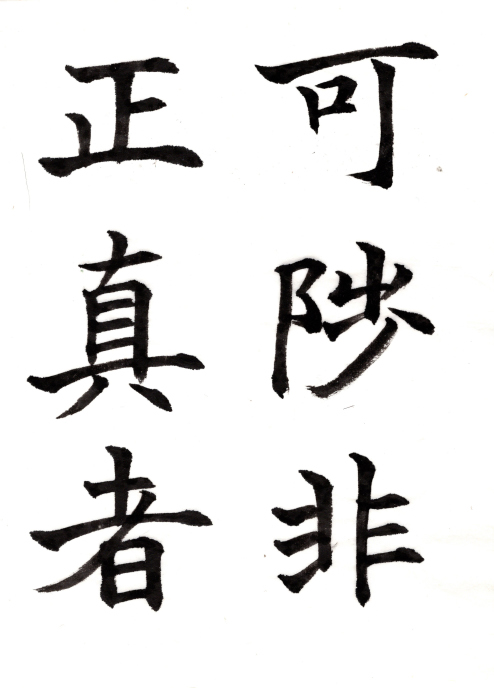 可陟非
正真者